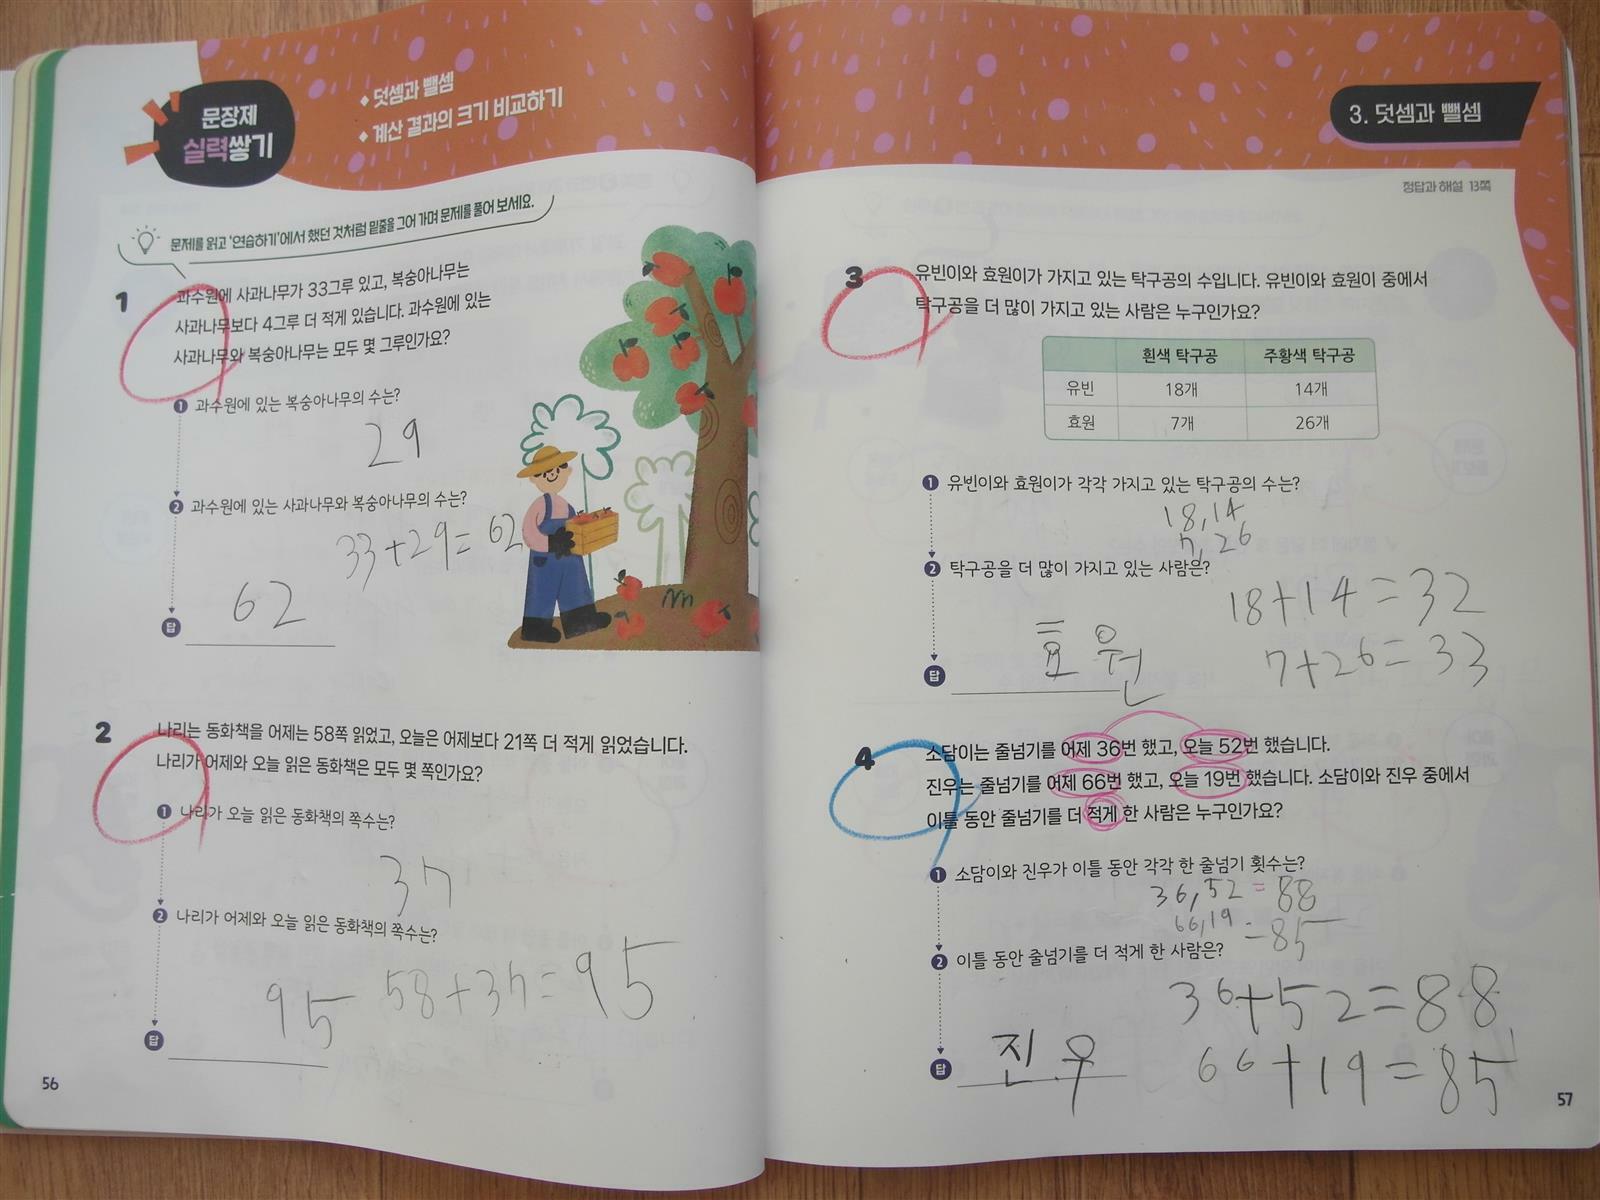 문장제
실력쌓기
◆ 덧셈과 뺄셈
◆ 계산 결과의 크기 비교하기
문제를 읽고 '연습하기'에서 했던 것처럼 밑줄을 그어 가며 문제를 풀어 보세요.
1 과수원에 사과나무가 33그루 있고, 복숭아나무는
사과나무보다 4그루 더 적게 있습니다. 과수원에 있는
사과나무와 복숭아나무는 모두 몇 그루인가요?
❶ 과수원에 있는 복숭아나무의 수는?
29
❷ 과수원에 있는 사과나무와 복숭아나무의 수는?
33+29=62
답 62
2 나리는 동화책을 어제는 58쪽 읽었고, 오늘은 어제보다 21쪽 더 적게 읽었습니다.
나리가 어제와 오늘 읽은 동화책은 모두 몇 쪽인가요?
❶ 나리가 오늘 읽은 동화책의 쪽수는?
37
❷ 나리가 어제와 오늘 읽은 동화책의 쪽수는?
58+37=95
답 95
56
3. 덧셈과 뺄셈
정답과 해설 13쪽
3 유빈이와 효원이가 가지고 있는 탁구공의 수입니다. 유빈이와 효원이 중에서
탁구공을 더 많이 가지고 있는 사람은 누구인가요?
흰색 탁구공 주황색 탁구공
유빈 18개 14개
효원 7개 26개
❶ 유빈이와 효원이가 각각 가지고 있는 탁구공의 수는?
18,14
7,26
❷ 탁구공을 더 많이 가지고 있는 사람은?
18+14=32
7+26=33
답 효원
4 소담이는 줄넘기를 어제 36번 했고, 오늘 52번 했습니다.
진우는 줄넘기를 어제 66번 했고, 오늘 19번 했습니다. 소담이와 진우 중에서
이틀 동안 줄넘기를 더 적게 한 사람은 누구인가요?
❶ 소담이와 진우가 이틀 동안 각각 한 줄넘기 횟수는?
36,52=88
66,19=85
❷ 이틀 동안 줄넘기를 더 적게 한 사람은?
36+52=88
66+19=85
답 진우
57